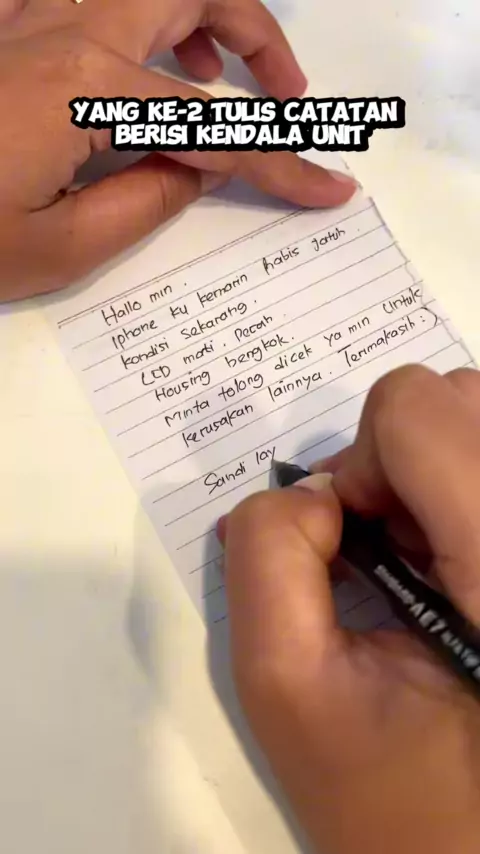 YANG KE-2 TULIS CATATAN
BERISI KENDALA UNIT
Hallo min.
Iphone ku kemarin habis jatuh.
kondisi sekarang.
LCD mati. Pecah.
Housing bengkok.
Minta tolong dicek ya min untuk
kerusakan lainnya. Terimakasih :)
Sandi lay